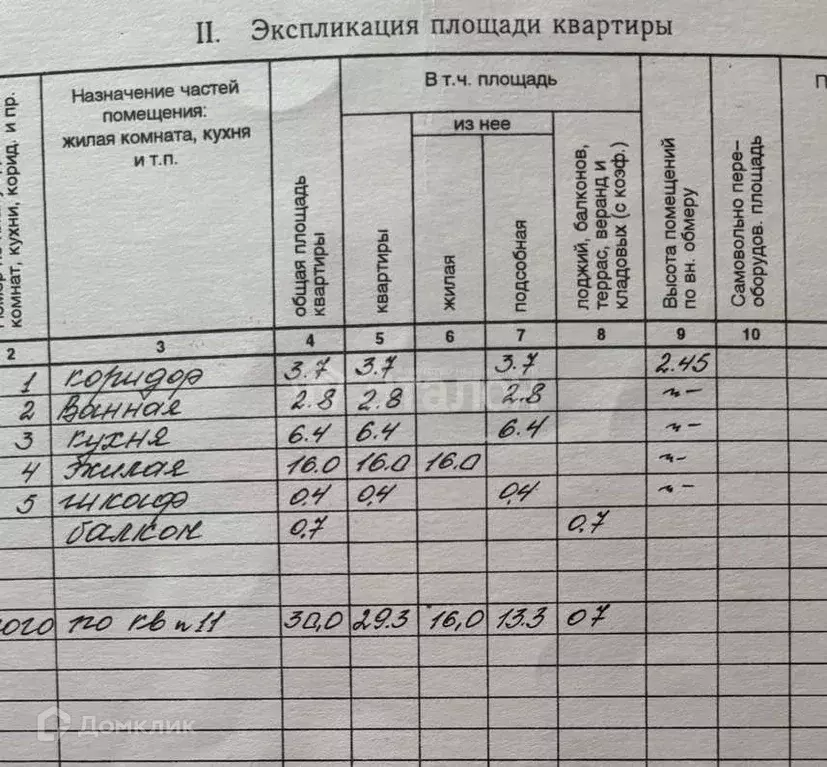 II. Экспликация площади квартиры
комнат, кухни, корид. и пр.
Назначение частей
помещения:
жилая комната, кухня
и т.п.
общая площадь
квартиры
В т.ч. площадь
квартиры
из нее
жилая
подсобная
лоджий, балконов,
террас, веранд и
кладовых (с коэф.)
Высота помещений
по вн. обмеру
Самовольно пере-
оборудов. площадь
П
2 3 4 5 6 7 8 9 10
1 коридор 3.7 3.7 3.7 2.45
2 Ванная 2.8 2.8 2.8 -"-
3 кухня 6.4 6.4 6.4 -"-
4 Жилая 16.0 16.0 16.0 -"-
5 шкаф 0,4 0,4 0,4 -"-
балкон 0,7 0.7
ого по кв п 11 30,0 29.3 16,0 13.3 07
Эталон
Домклик